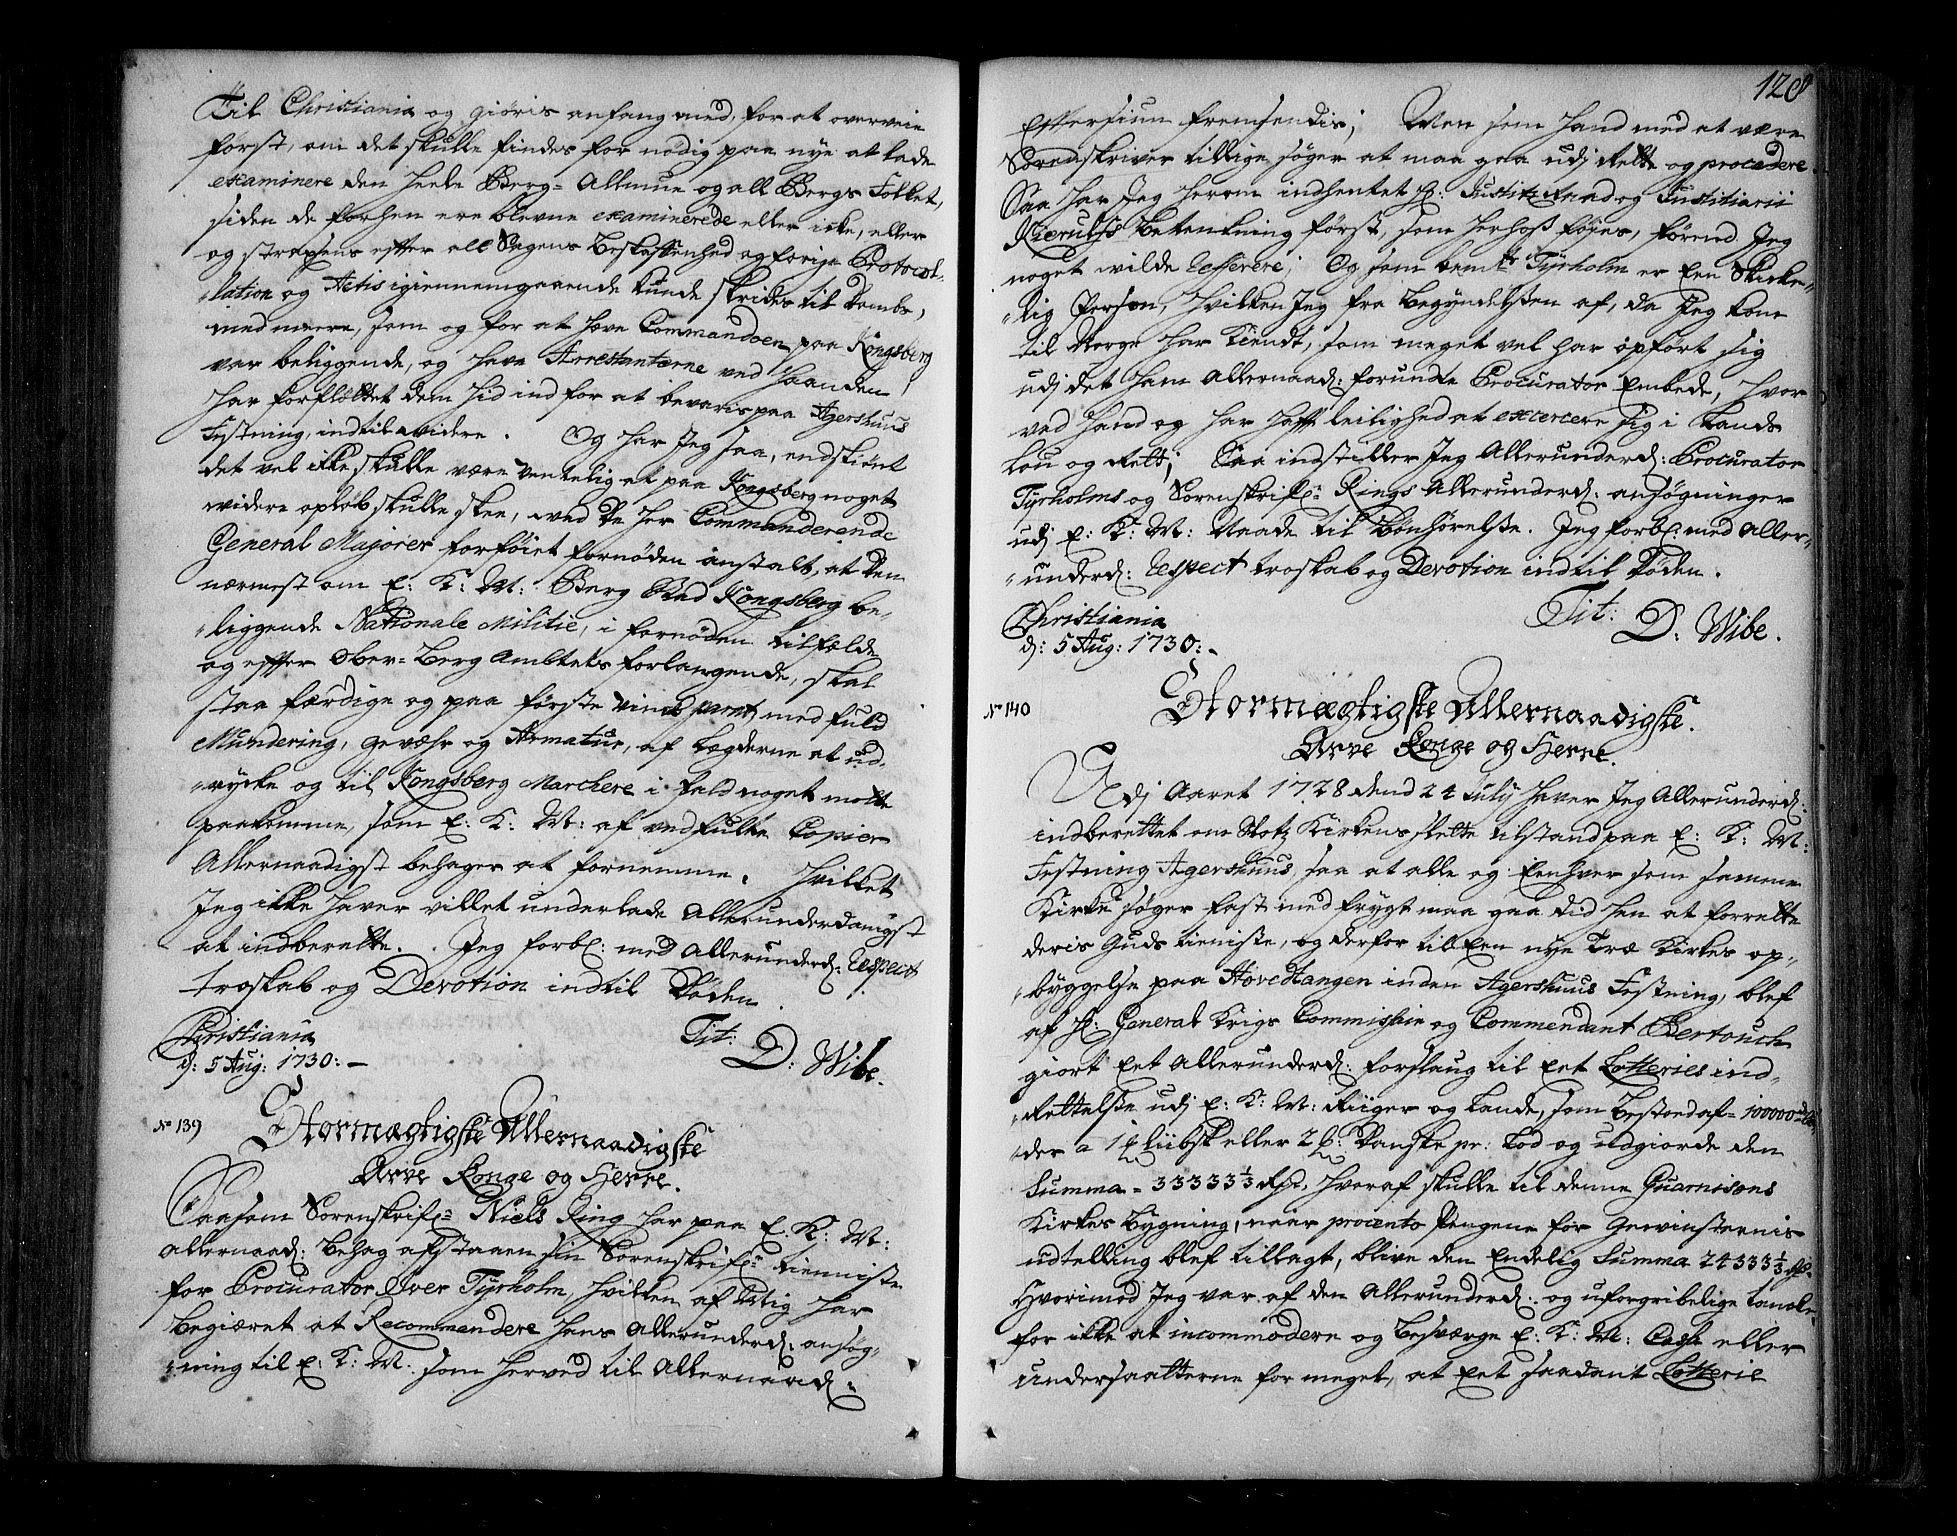 Til Christiania og giøris anfang med, for at overveie
først, om det skulle findes for nødig paa nye at lade
examinere den heele Berg-Allmue og all Bergs Folket,
siden de forhen ere blevne examinerede eller icke, eller
og straxens efter all Sagens Beskaffenhed og forige Protocol-
lation og Actis igiennemgaaende kunde skrides til Dombs,
med meere, som og for at have Commandoen paa Kongsberg
var beliggende, og have Arrestanterne ved Haanden,
har forfløttet dem hid ind for at bevaris paa Agershuus
Festning, indtil widere. Og har Jeg saa, endskiønt
det vel ikke skulle være ventelig at paa Kongsberg noget
widere opløb skulle skee, med De her Commanderende
General Majorer forføiet fornøden anstalt, at Den
nærmest om E: K: M: Berg Stad Kongsberg be-
liggende Nationale Militie, i fornøden tilfælde
og effter Ober-Berg Ambtets forlangende, skal
staa færdige og paa første vinck parat med fuld
Mundering, gevæhr og Armatur, af Lægderne at ud-
rycke og til Kongsberg Marchere i fald noget motte
paakomme, som E: K: M: af vedfulte Copier
Allernaadigst behager at fornemme. Hvilket
Jeg ikke haver villet underlade Allerunderdanigst
at indberette. Jeg forbl: med Allerunderd: Respect
troskab og Devotion indtil Døden.
Christiania
d: 5 Aug: 1730:-
Tit:
D: Wibe.
No 139
Stormægtigste Allernaadigste
Arve Konge og Herre.
Saasom Sorenskrifr Niels Ring har paa E. K: M:
allernaad: behag afstaaen sin Sorenskrifr tienniste
for Procurator Iver Tyrholm, hvilken af Mig har
begiæret at Recommendere hans Allerunderd: ansøg-
ning til E: K: M. som herved til Allernaad:
128
Effersiun fremsendis; Men som hand med at være
Sorenskriver tillige søger at maa gaa udj Rette og procedere
Saa har Jeg herom indhentet Hr: Justitz Raad og Justitiarii
Kierulfs betenkning først, som herhoß føjes, førend Jeg
noget wilde Referere; Og som bemte Tyrholm er Een Skicke-
lig Person, hvilken Jeg fra begyndelsen af, da Jeg kom
til Norge har kiendt, som meget vel har opført sig
udj det ham Allernaad: forundte Procurator Embede, hvor
ved hand og har hafft leilighed at exercere sig i Lands
Lou og Rett; Saa indstiller Jeg Allerunderd: Procurator
Tyrholms og Sorenskrifr Rings Allerunderd: ansøgninger
udj E: K: M: Naade til bønhørelse. Jeg forbl: med Aller-
underd: Respect troskab og Devotion indtil Døden.
Christiania
d: 5 Aug: 1730:-
Tit:
D: Wibe.
No 140
Stormægtigste Allernaadigste.
Arve Konge og Herre.
Udj Aaret 1728 dend 24 July haver Jeg Allerunderd:
indberettet om Slotz Kirkens slette tilstand paa E: K: M:
Festning Agershuus, saa at alle og Eenhver som samme
Kirke søger fast med frygt maa gaa did hen at forrette
deris Guds tieniste, og derfor til Een nye Træ Kirkes op-
byggelse paa Hovedtangen inden Agershuus Festning, blef
af Hr: General Krigs Commissair og Commendant Bertouch
giort Eet Allerunderd: forslaug til Eet Lotteries ind-
Rettelse udj E: K: M: Riiger og Lande, som bestoed af 100000
der a 1 ß Lübsk eller 2 ß: Danske pr: Lod og udgiorde den
Summa 33333⅓ Rdr, hvoraf skulle til denne Guarnisons
Kirkes bygning, naar procento Pengene for Gevinsternis
udtelling blef tillagt, blive den Endelig Summa 24333⅓ Rdr
Hvorimod Jeg var af den Allerunderd: og uforgribelige tanke
for ikke at incommodere og besværge E: K: M: Cassa eller
undersaatterne for meget, at Eet saadant Lotterie